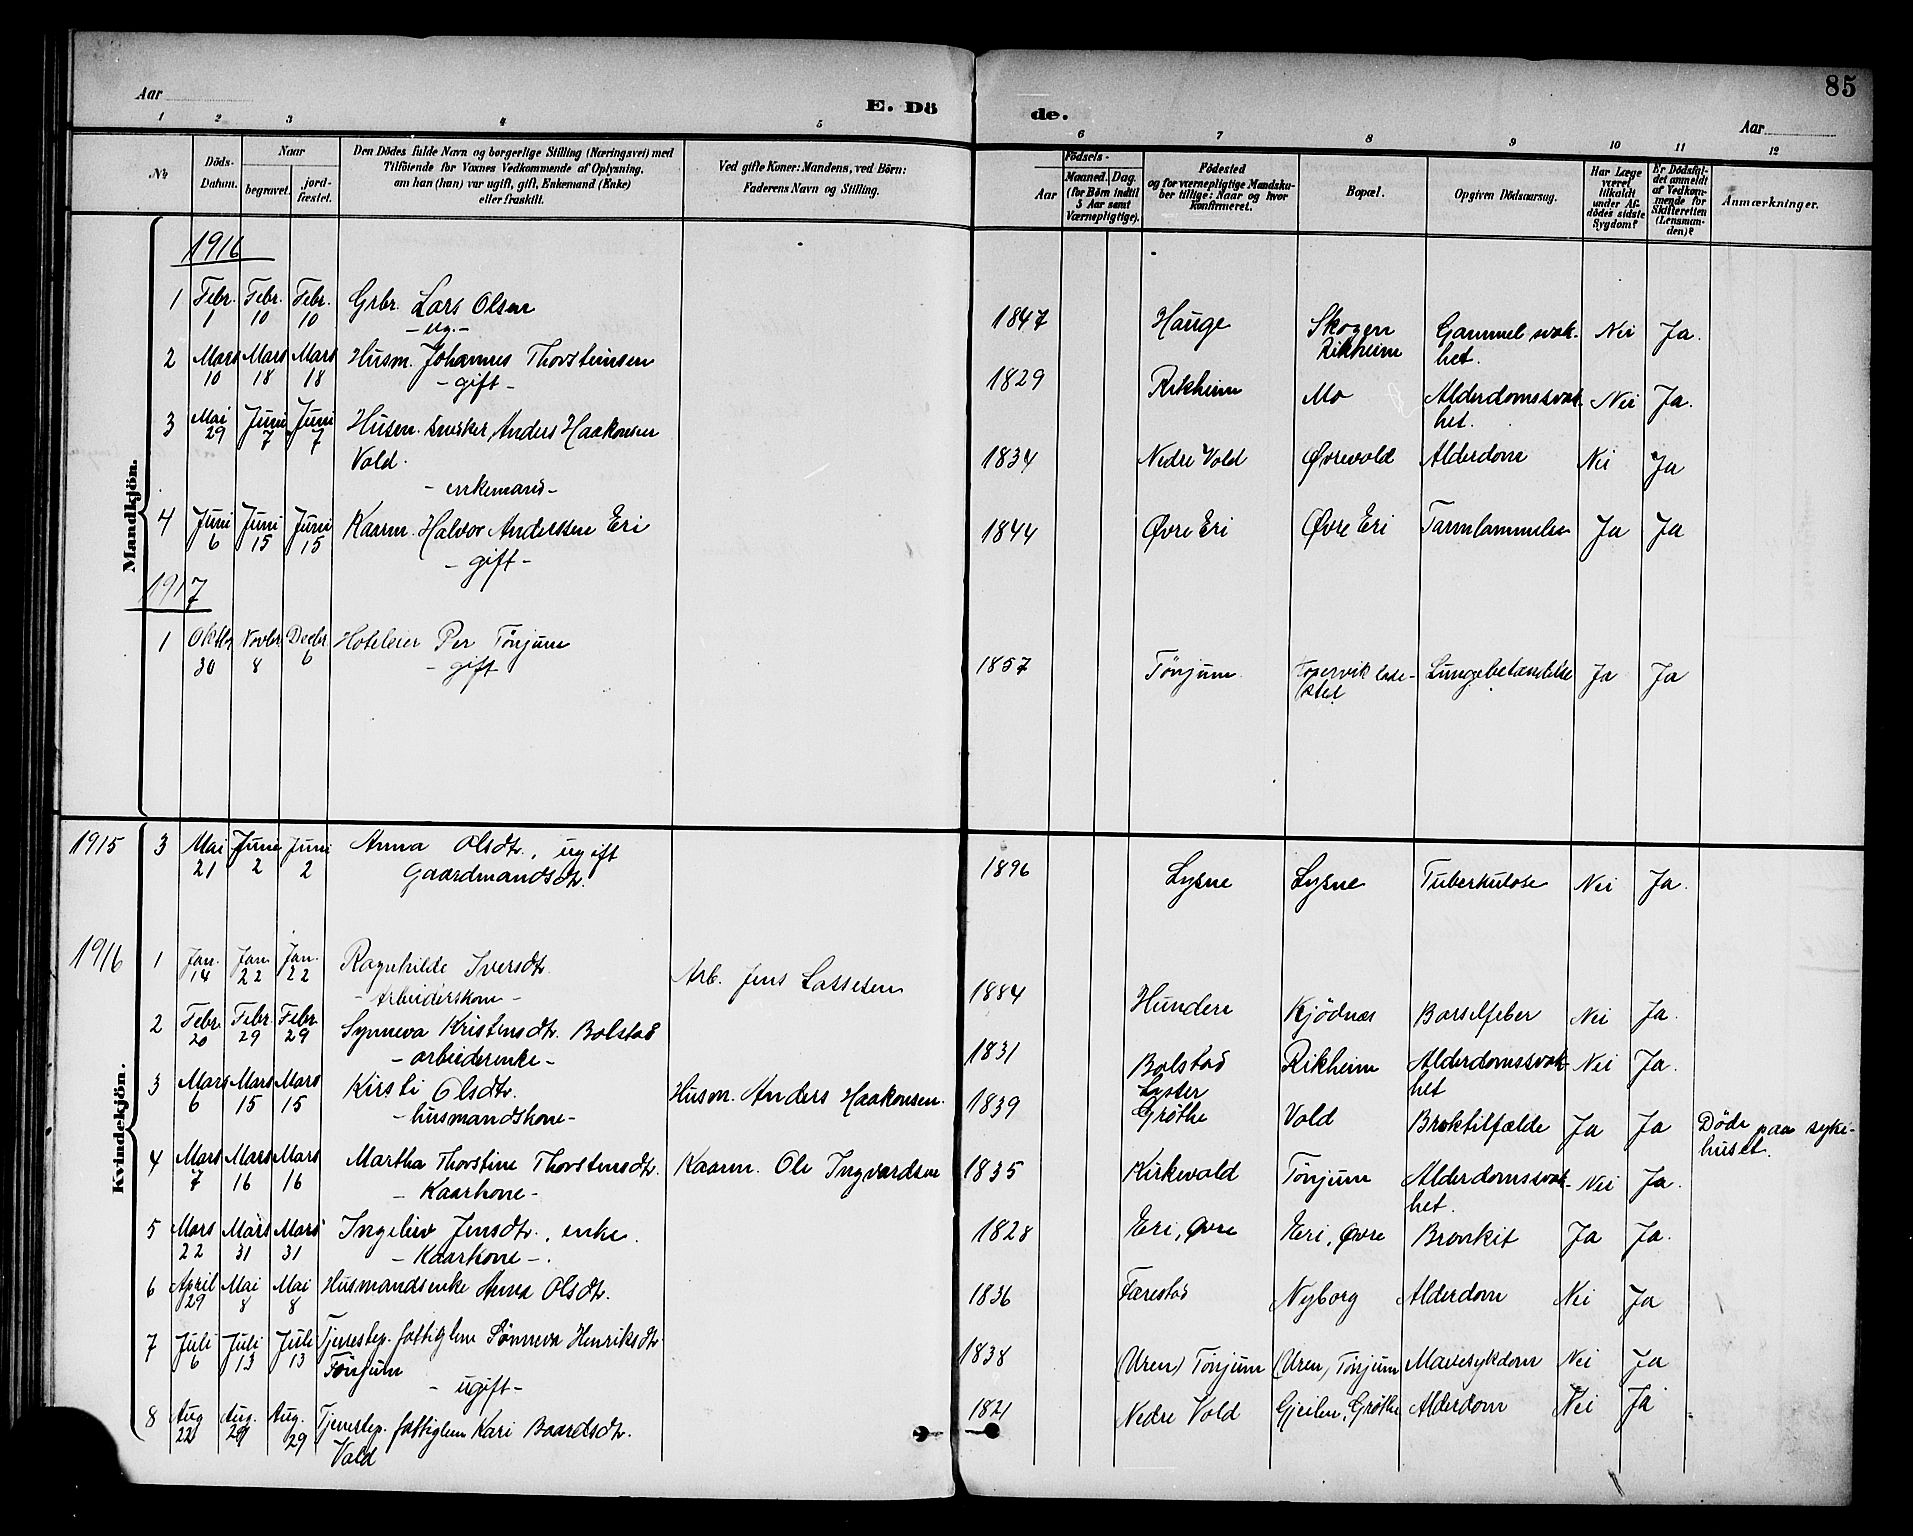 85
Aar
E. Dö
de.
Aar
1 2 3 4 5 6 7 8 9 10 11 12
No
Döds-Datum.
Naar
begravet.
jord-fæstet.
Den Dödes fulde Navn og borgerlige Stilling (Næringsvei) med
Tilföiende for Voxnes Vedkommende af Oplysning,
om han (hun) var ugift, gift, Enkemand (Enke)
eller fraskilt.
Ved gifte Koner: Mandens, ved Börn:
Faderens Navn og Stilling.
Födsels-
Aar
Maaned. Dag.
(for Börn indtil
5 Aar samt
Værnepligtige).
Födested
og for værnepligtige Mandsku-
ber tillige: Naar og hvor
Konfirmeret.
Bopæl.
Opgiven Dödsaarsag.
Har Læge
været
tilkaldt
under Af-
dödes sidste
Sygdom?
Er Dödsfal-
det anmeldt
af Vedkom-
mende for
Skifteretten
(Lensman-
den)?
Anmærkninger.
Mandkjön.
1916
1 Febr. 1 Febr. 10 Febr. 10 Grbr. Lars Olsen
- ug. -
1847 Hauge Skogen Rikheim Gammel svak-het. Nei Ja.
2 Mars 10 Mars 18 Mars 18 Husm. Johannes Thorsteinsen
- gift -
1829 Rikheim Mo Alderdomssvak-het. Nei Ja.
3 Mai 29 Juni 7 Juni 7 Husm. snekker Anders Haakonsen
Vold.
- enkemand -
1834 Nedre Vold Øvrevold Alderdom Nei Ja
4 Juni 6 Juni 15 Juni 15 Kaarm. Halvor Anderssen Eri
- gift -
1844 Øvre Eri Øvre Eri Tarmlammelse Ja Ja
1917
1 Oktbr 30 Novbr 8 Decbr 6 Hoteleier Per Tønjum
- gift
1857 Tønjum Lungebetændelse Ja Ja
Kvindekjön.
1915 3 Mai 21 Juni 2 Juni 2 Anna Olsdtr., ugift
Gaardmandsdtr.
1896 Lysne Lysne Tuberkulose Nei Ja.
1916 1 Jan. 14 Jan 22 Jan. 22 Ragnhilde Iversdtr.
- Arbeiderskone -
Arb. Jens Lassesen 1884 Hundere Kjødnæs Barselfeber Nei Ja.
2 Febr. 20 Febr. 29 Febr. 29 Synneva Kristensdtr. Bolstad
- arbeiderenke -
1831 Bolstad Lyster Rikheim Alderdomssvak-het Nei Ja.
3 Mars 6 Mars 15 Mars 15 Kirsti Olsdtr.
- husmandskone -
Husm. Anders Haakonsen. 1839 Grøthe Vold Broktilfælde Ja Ja Døde paa syke-huset.
4 Mars 7 Mars 16 Mars 16 Martha Thorstine Thorstensdtr.
- Kaarkone -
Kaarm. Ole Ingvardsen 1835 Kirkevold Tønjum Alderdomssvak-het. Nei Ja.
5 Mars 22 Mars 31 Mars 31 Ingeliv Jensdtr., enke.
- Kaarkone -.
1828 Eri, Øvre Eri, Øvre Bronkit Ja Ja.
6 April 29 Mai 8 Mai 8 Husmandsenke Anna Olsdtr.
1836 Færestad Nyborg Alderdom Nei Ja
7 Juli 6 Juli 13 Juli 13 Tjenestep. fattiglem Sønneva Henriksdtr
Tønjum
- ugift -
1838 (Uren) Tønjum (Uren) Tønjum Mavesykdom Nei Ja
8 Aug 22 Aug. 29 Aug. 29 Tjenestep. fattiglem Kari Baardsdtr.
Vold
1821 Nedre Vold Gjeilen, Grøthe Alderdom Nei Ja